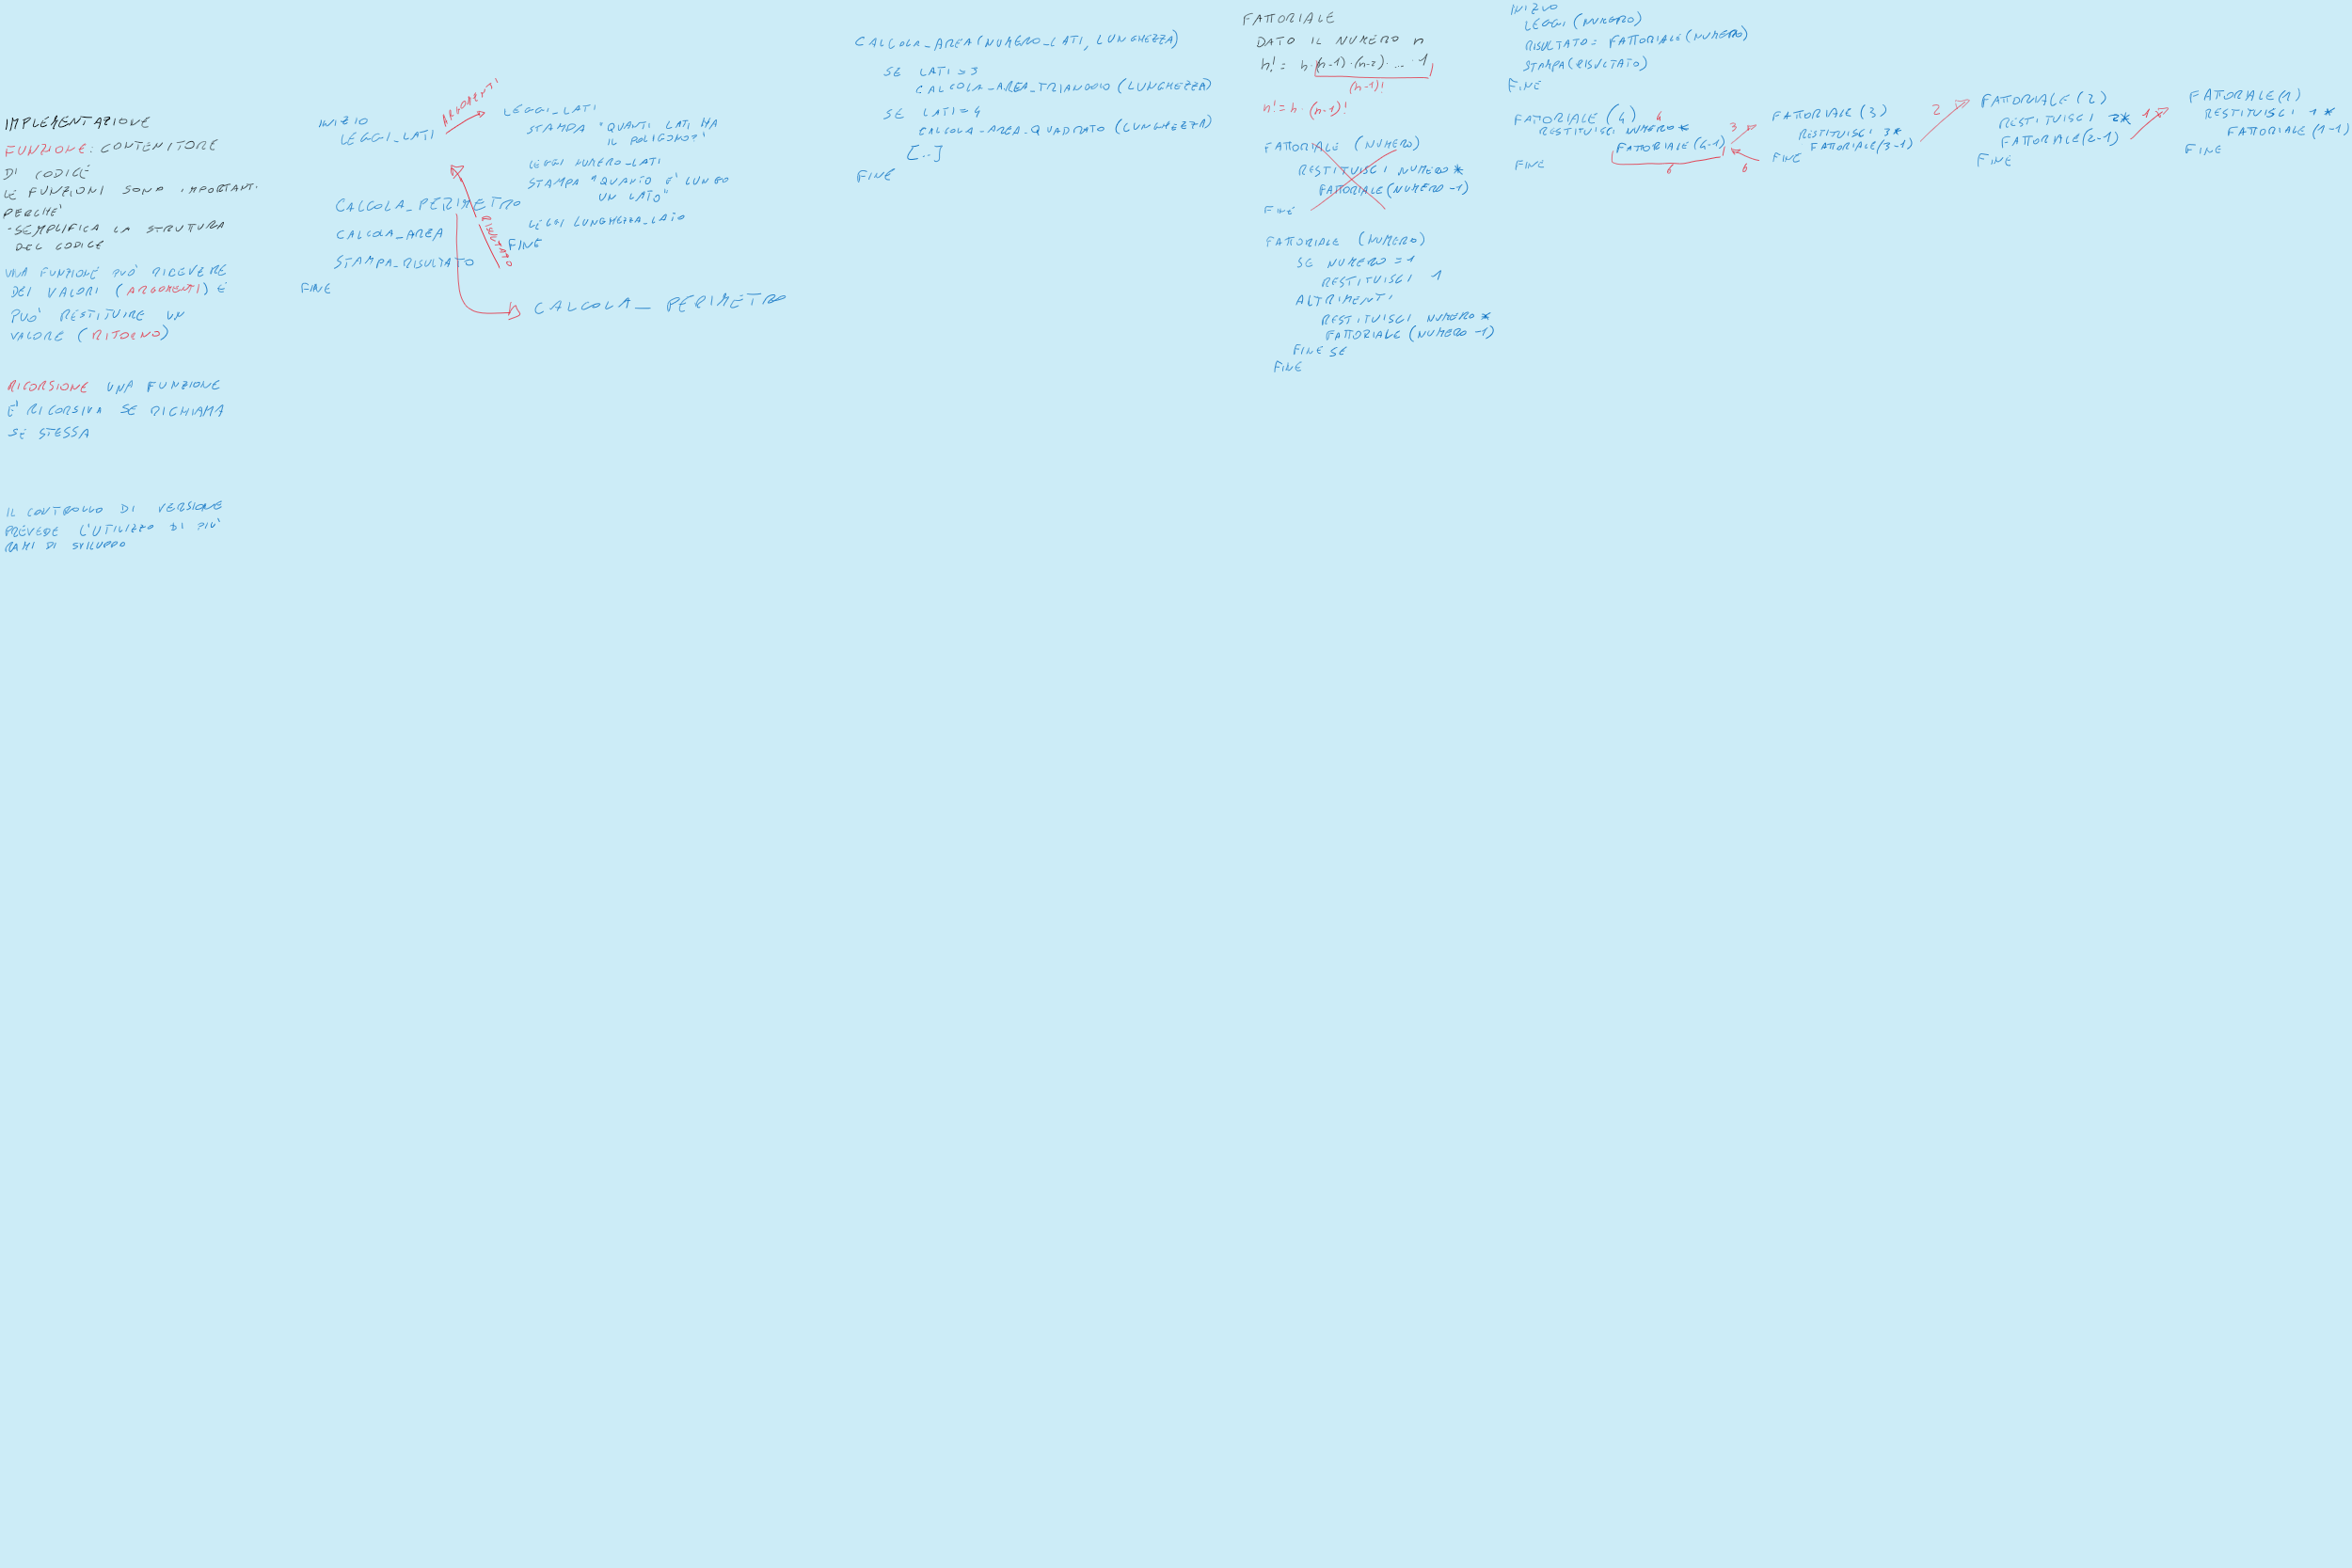 IMPLEMENTAZIONE
FUNZIONE: CONTENITORE
DI CODICE
LE FUNZIONI SONO IMPORTANTI
PERCHE'
-SEMPLIFICA LA STRUTTURA
DEL CODICE
UNA FUNZIONE PUÒ RICEVERE
DEI VALORI (ARGOMENTI) E
PUO' RESTITUIRE UN
VALORE (RITORNO)
RICORSIONE UNA FUNZIONE
E' RICORSIVA SE RICHIAMA
SE STESSA
IL CONTROLLO DI VERSIONE
PREVEDE L'UTILIZZO DI PIU'
RAMI DI SVILUPPO
INIZIO
LEGGI_LATI
CALCOLA_PERIMETRO
CALCOLA_AREA
STAMPA_RISULTATO
FINE
ARGOMENTI
RISULTATO
LEGGI_LATI
STAMPA "QUANTI LATI HA
IL POLIGONO?"
LEGGI NUMERO_LATI
STAMPA "QUANTO E' LUNGO
UN LATO"
LEGGI LUNGHEZZA_LATO
FINE
CALCOLA_ PERIMETRO
CALCOLA_AREA(NUMERO_LATI, LUNGHEZZA)
SE LATI = 3
CALCOLA_AREA_TRIANGOLO (LUNGHEZZA)
SE LATI = 4
CALCOLA_AREA_QUADRATO (LUNGHEZZA)
[...]
FINE
FATTORIALE
DATO IL NUMERO n
n! = n·(n-1)·(n-2)· ... ·1
(n-1)!
n! = n·(n-1)!
FATTORIALE (NUMERO)
RESTITUISCI NUMERO *
FATTORIALE(NUMERO-1)
FINE
FATTORIALE (NUMERO)
SE NUMERO = 1
RESTITUISCI 1
ALTRIMENTI
RESTITUISCI NUMERO *
FATTORIALE (NUMERO -1)
FINE SE
FINE
INIZIO
LEGGI (NUMERO)
RISULTATO = FATTORIALE(NUMERO)
STAMPA(RISULTATO)
FINE
FATTORIALE (4)
4
RESTITUISCI NUMERO *
FATTORIALE (4-1)
6
FINE
3
6
FATTORIALE (3)
RESTITUISCI 3*
FATTORIALE(3-1)
FINE
2
FATTORIALE (2)
RESTITUISCI 2*
FATTORIALE(2-1)
FINE
1
FATORIALE(1)
RESTITUISCI 1 *
FATTORIALE (1-1)
FINE